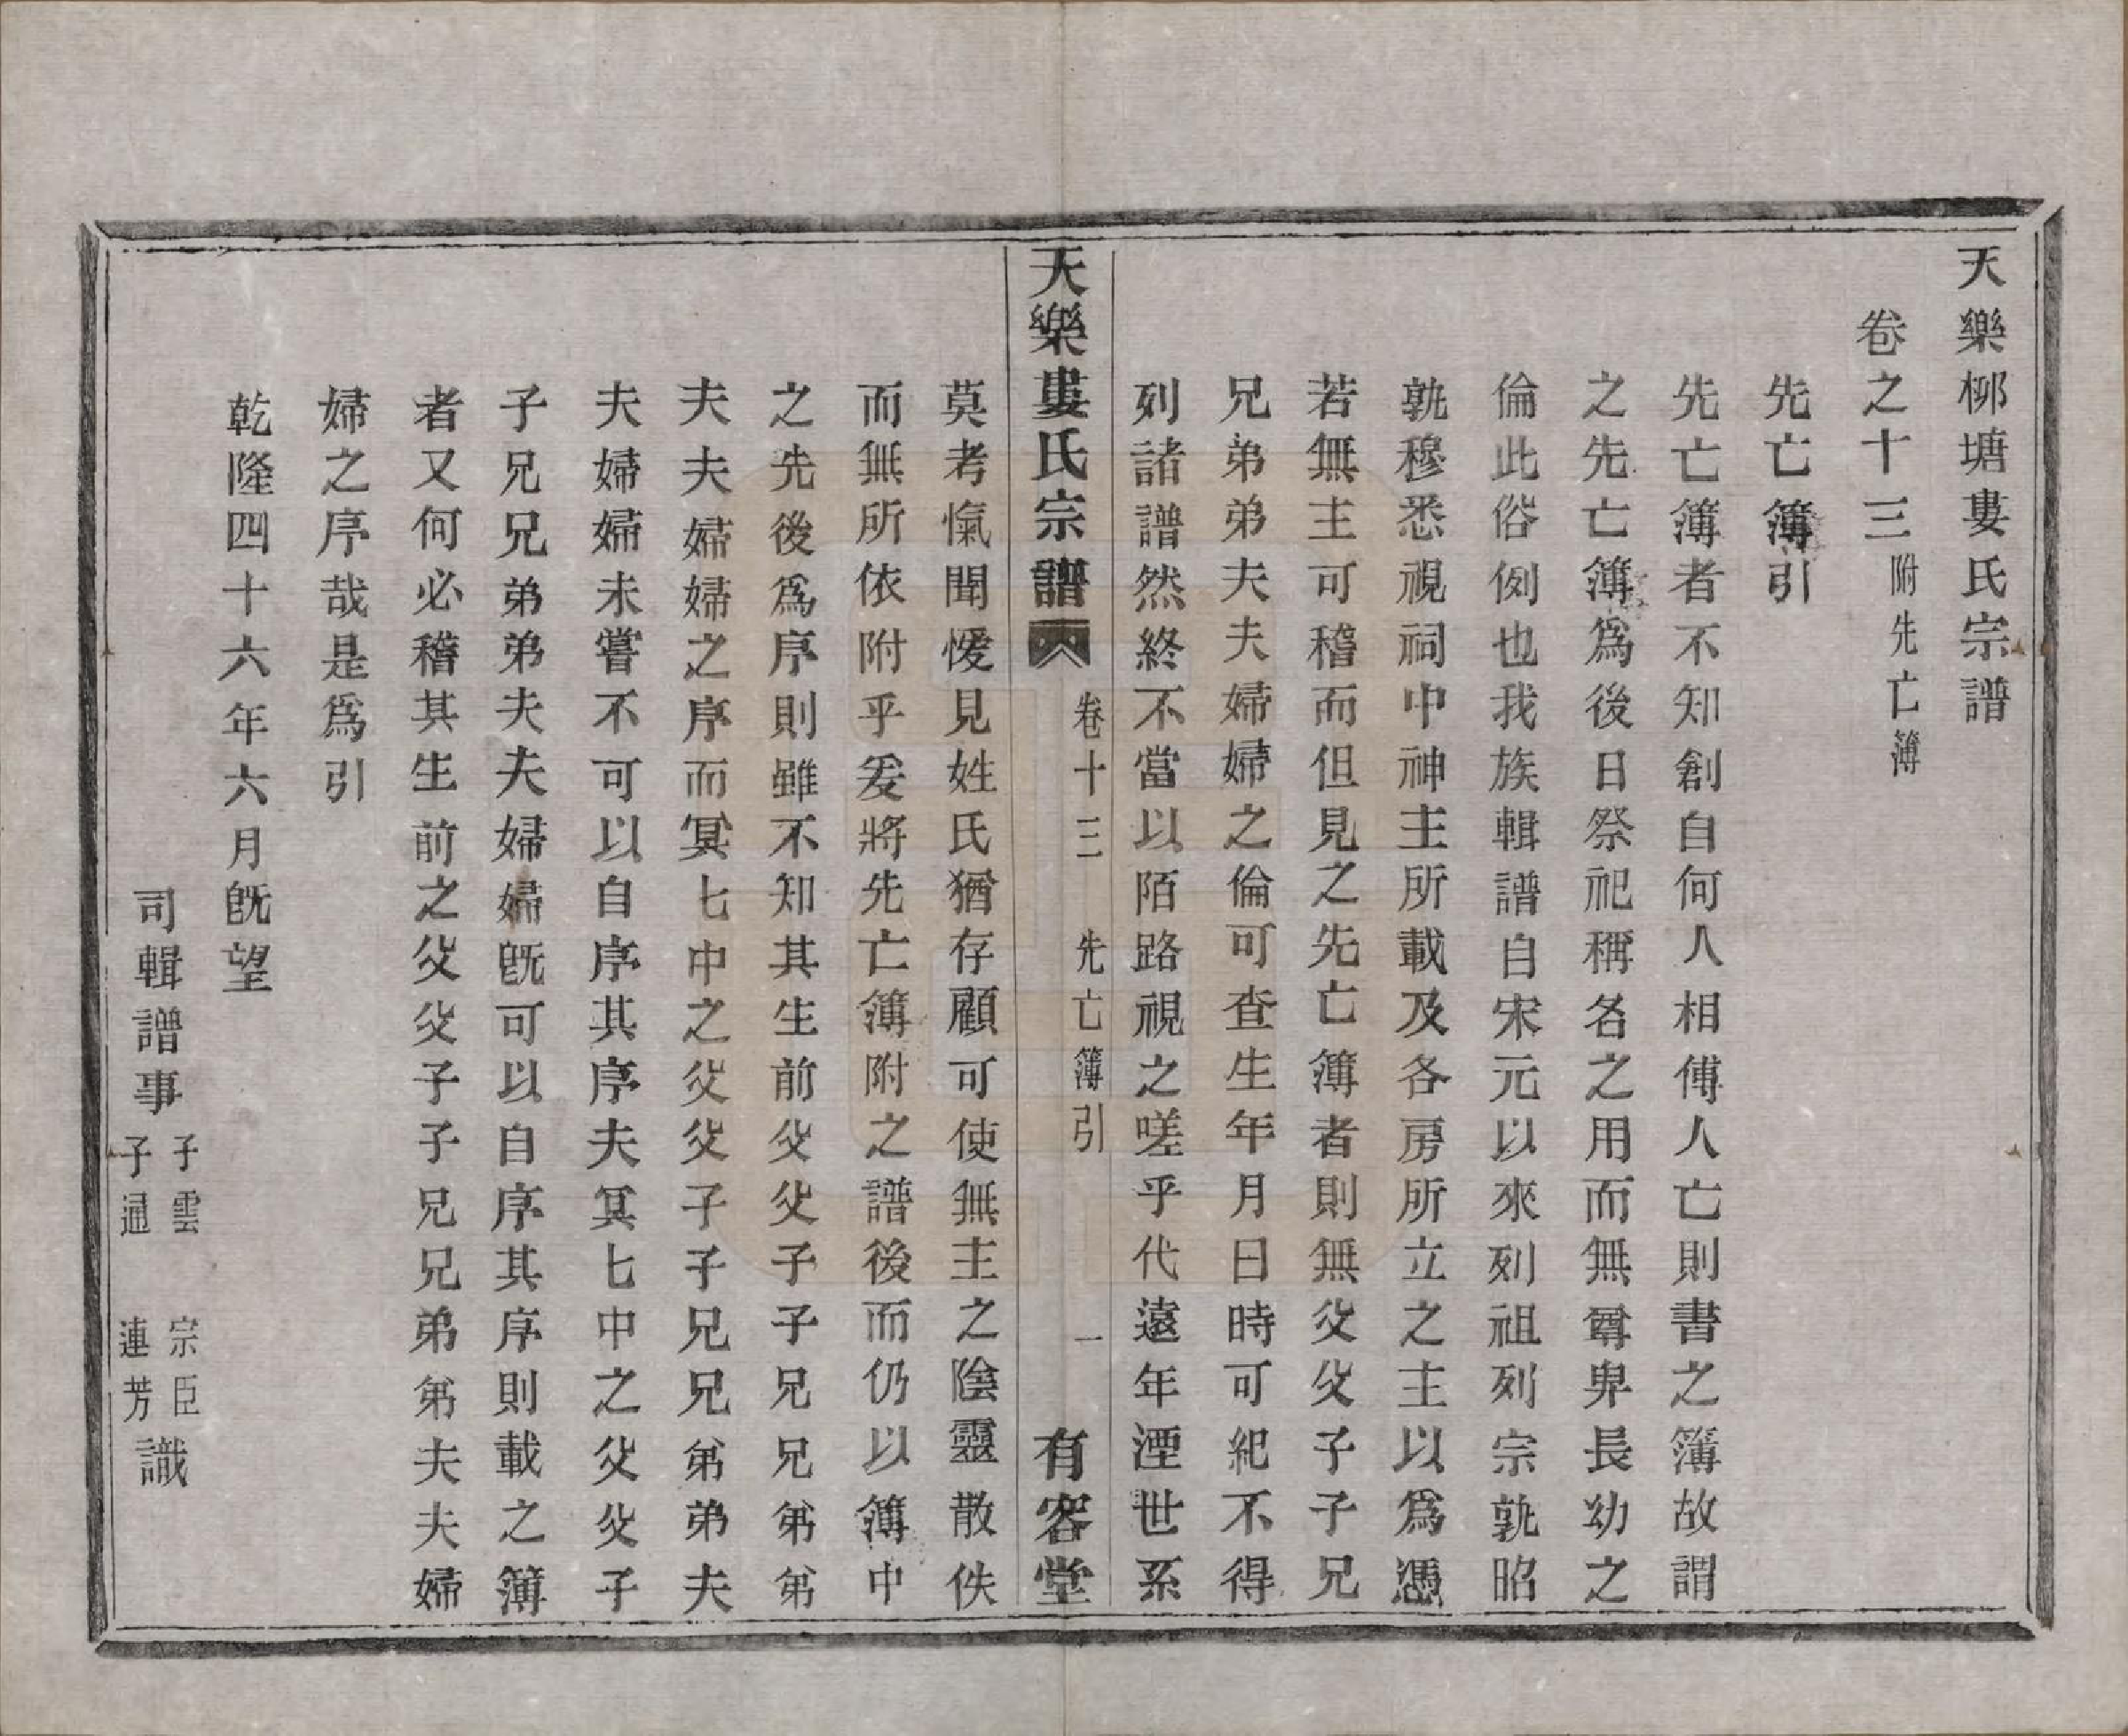 天樂桞塘婁氏宗譜
卷之十三附先亡簿
先亡簿引
先亡簿者不知創自何人相傳人亡則書之簿故謂
之先亡簿爲後日祭祀稱名之用而無尊卑長幼之
倫此俗例也我族輯譜自宋元以來列祖列宗孰昭
孰穆悉視祠中神主所載及各房所立之主以爲憑
若無主可稽而但見之先亡簿者則無父父子子兄
兄弟弟夫夫婦婦之倫可查生年月日時可紀不得
列諸譜然終不當以陌路視之嗟乎代遠年湮世系
天樂婁氏宗譜 卷十三 先亡簿引 一 有容堂
莫考愾聞僾見姓氏猶存顧可使無主之陰靈散佚
而無所依附乎爰將先亡簿附之譜後而仍以簿中
之先後爲序則雖不知其生前父父子子兄兄弟弟
夫夫婦婦之序而冥七中之父父子子兄兄弟弟夫
夫婦婦未嘗不可以自序其序夫冥七中之父父子
子兄兄弟弟夫夫婦婦旣可以自序其序則載之簿
者又何必稽其生前之父父子子兄兄弟弟夫夫婦
婦之序哉是爲引
乾隆四十六年六月旣望
司輯譜事 子雲 子通 宗臣 連芳 識